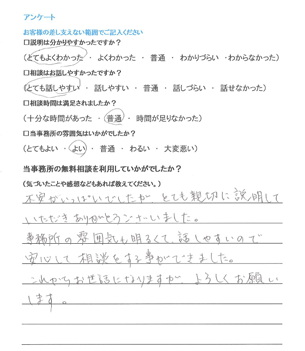 アンケート
お客様の差し支えない範囲でご記入ください
□説明は分かりやすかったですか？
（とてもよくわかった ・ よくわかった ・ 普通 ・ わかりづらい ・わからなかった）
□相談はお話しやすかったですか？
（とても話しやすい ・ 話しやすい ・ 普通 ・ 話しづらい ・ 話せなかった）
□相談時間は満足されましたか？
（十分な時間があった ・ 普通 ・ 時間が足りなかった）
□当事務所の雰囲気はいかがでしたか？
（とてもよい ・ よい ・ 普通 ・ わるい ・ 大変悪い）
当事務所の無料相談を利用していかがでしたか？
（気づいたことや感想などもあれば教えてください。）
不安がいっぱいでしたが とても親切に説明して
いただきありがとうございました。
事務所の雰囲気も明るくて、話しやすいので
安心して相談をする事ができました。
これからお世話になりますが よろしくお願い
します。